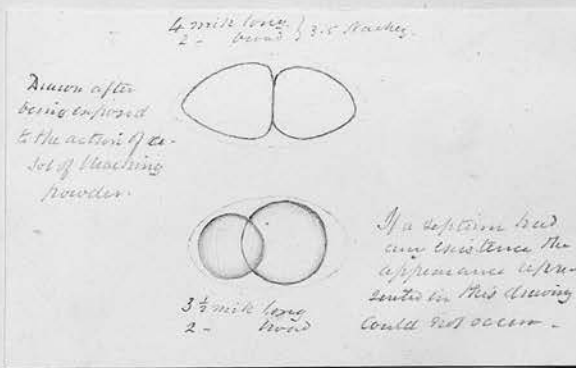 4 mill long
2 - broad } 3.5
Drawn after
being exposed
to the action of a
sol of bleaching
powder.
If a septum had
any existence the
appearance repre-
sented in this drawing
could not occur -
3 ½ mill long
2 - broad